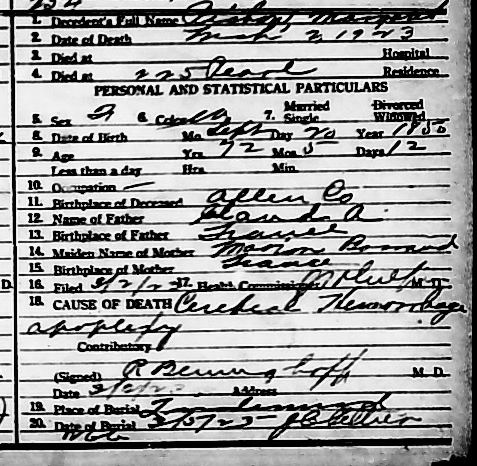 1. Decedent's Full Name Bishop, Margaret
2. Date of Death Mch 2, 1923
3. Died at Hospital
4. Died at 225 Pearl Residence
PERSONAL AND STATISTICAL PARTICULARS
5. Sex F 6. Color W 7. Married Single Divorced Widowed
8. Date of Birth Mo. Sept Day 20 Year 1850
9. Age Yrs. 72 Mos. 5 Days 12
Less than a day Hrs. Min.
10. Occupation —
11. Birthplace of Deceased Allen Co
12. Name of Father Claud A.
13. Birthplace of Father France
14. Maiden Name of Mother Marion
15. Birthplace of Mother France
16. Filed 3/2/23 17. Health Commissioner M. D.
D.
18. CAUSE OF DEATH Cerebral Hemorrhage
apoplexy
Contributory
(Signed) M. D.
Date Address
19. Place of Burial
20. Date of Burial